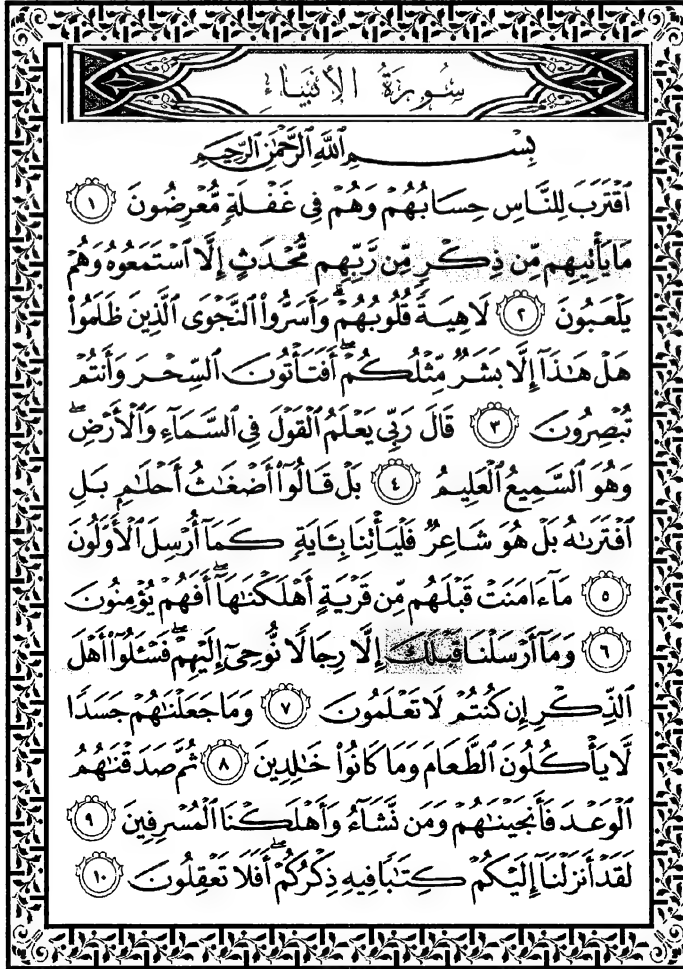 سُورَةُ الأَنبِيَاءِ
بِسْمِ ٱللَّهِ ٱلرَّحْمَٰنِ ٱلرَّحِيمِ
ٱقْتَرَبَ لِلنَّاسِ حِسَابُهُمْ وَهُمْ فِى غَفْلَةٍ مُّعْرِضُونَ ١
مَا يَأْتِيهِم مِّن ذِكْرٍ مِّن رَّبِّهِم مُّحْدَثٍ إِلَّا ٱسْتَمَعُوهُ وَهُمْ
يَلْعَبُونَ ٢ لَاهِيَةً قُلُوبُهُمْ ۗ وَأَسَرُّوا۟ ٱلنَّجْوَى ٱلَّذِينَ ظَلَمُوا۟
هَلْ هَٰذَآ إِلَّا بَشَرٌ مِّثْلُكُمْ ۖ أَفَتَأْتُونَ ٱلسِّحْرَ وَأَنتُمْ
تُبْصِرُونَ ٣ قَالَ رَبِّى يَعْلَمُ ٱلْقَوْلَ فِى ٱلسَّمَآءِ وَٱلْأَرْضِ ۖ
وَهُوَ ٱلسَّمِيعُ ٱلْعَلِيمُ ٤ بَلْ قَالُوٓا۟ أَضْغَٰثُ أَحْلَٰمٍ بَلِ
ٱفْتَرَىٰهُ بَلْ هُوَ شَاعِرٌ فَلْيَأْتِنَا بِـَٔايَةٍ كَمَآ أُرْسِلَ ٱلْأَوَّلُونَ
٥ مَآ ءَامَنَتْ قَبْلَهُم مِّن قَرْيَةٍ أَهْلَكْنَٰهَآ ۖ أَفَهُمْ يُؤْمِنُونَ
٦ وَمَآ أَرْسَلْنَا قَبْلَكَ إِلَّا رِجَالًا نُّوحِىٓ إِلَيْهِمْ ۖ فَسْـَٔلُوٓا۟ أَهْلَ
ٱلذِّكْرِ إِن كُنتُمْ لَا تَعْلَمُونَ ٧ وَمَا جَعَلْنَٰهُمْ جَسَدًا
لَّا يَأْكُلُونَ ٱلطَّعَامَ وَمَا كَانُوا۟ خَٰلِدِينَ ٨ ثُمَّ صَدَقْنَٰهُمُ
ٱلْوَعْدَ فَأَنجَيْنَٰهُمْ وَمَن نَّشَآءُ وَأَهْلَكْنَا ٱلْمُسْرِفِينَ ٩
لَقَدْ أَنزَلْنَآ إِلَيْكُمْ كِتَٰبًا فِيهِ ذِكْرُكُمْ ۖ أَفَلَا تَعْقِلُونَ ١٠